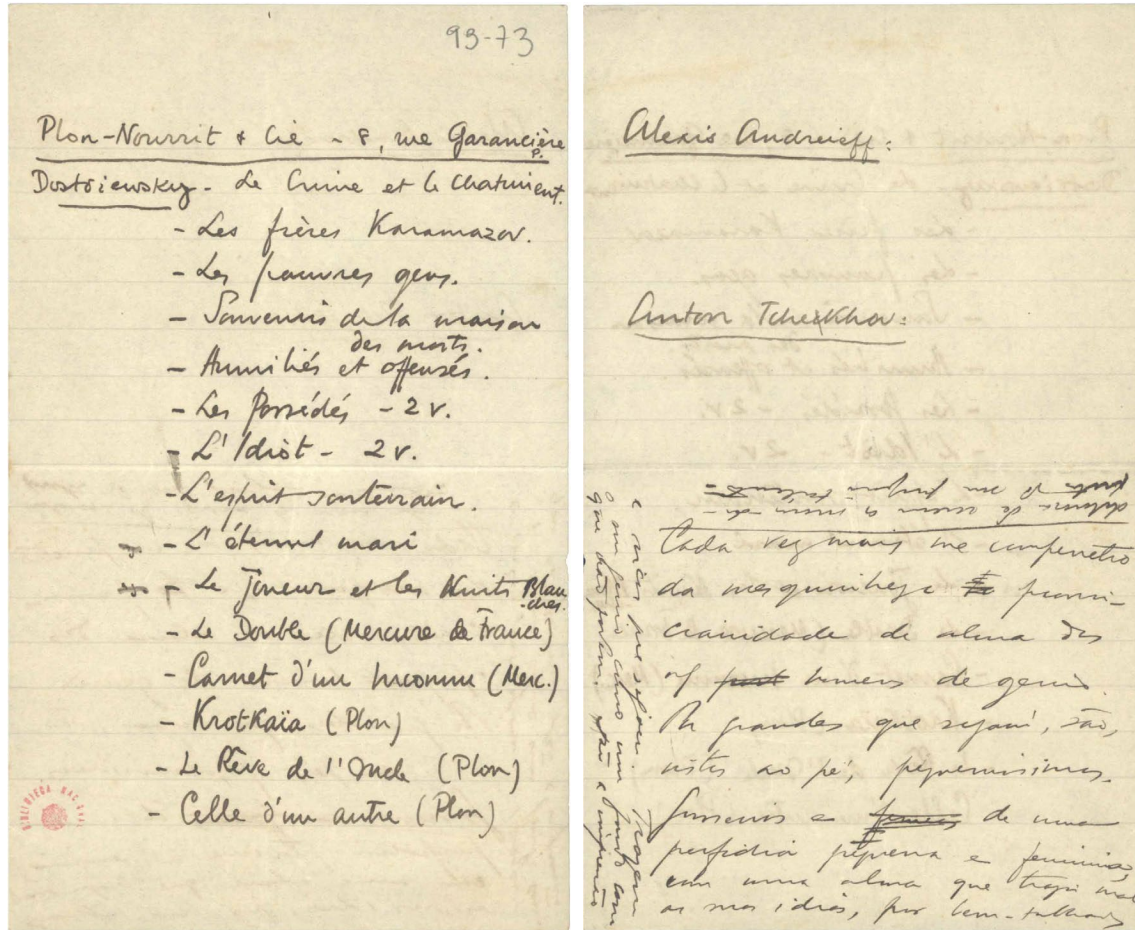 93-73
Plon-Nourrit & Cie - 8, rue Garancière
P.
Dostoiewsky - Le Crime et le Chatiment.
- Les frères Karamazov.
- Les pauvres gens.
- Souvenirs de la maison
des morts.
- Humiliés et offensés.
- Les Possédés - 2 v.
- L'Idiot - 2 v.
- L'esprit souterrain.
- L'éternel mari
- Le Joueur et les Nuits Blan-
ches.
- Le Double (Mercure de France)
- Carnet d'un Inconnu (Merc.)
- Krotkaïa (Plon)
- Le Rêve de l'Oncle (Plon)
- Celle d'un autre (Plon)
BIBLIOTECA NACIONAL
Alexis Andreieff:
Anton Tchekhov:
Cada vez mais me compenetro
da mesquinhez e
de alma dos
homens de genio.
grandes que sejam, são,
vistos ao pé, pequenissimos.
e de uma
perfidia pequena e feminina,
com uma alma que
as suas idéas, por bem-talhadas
e ricas que sejam. Trazem
o seu genio como um
que não